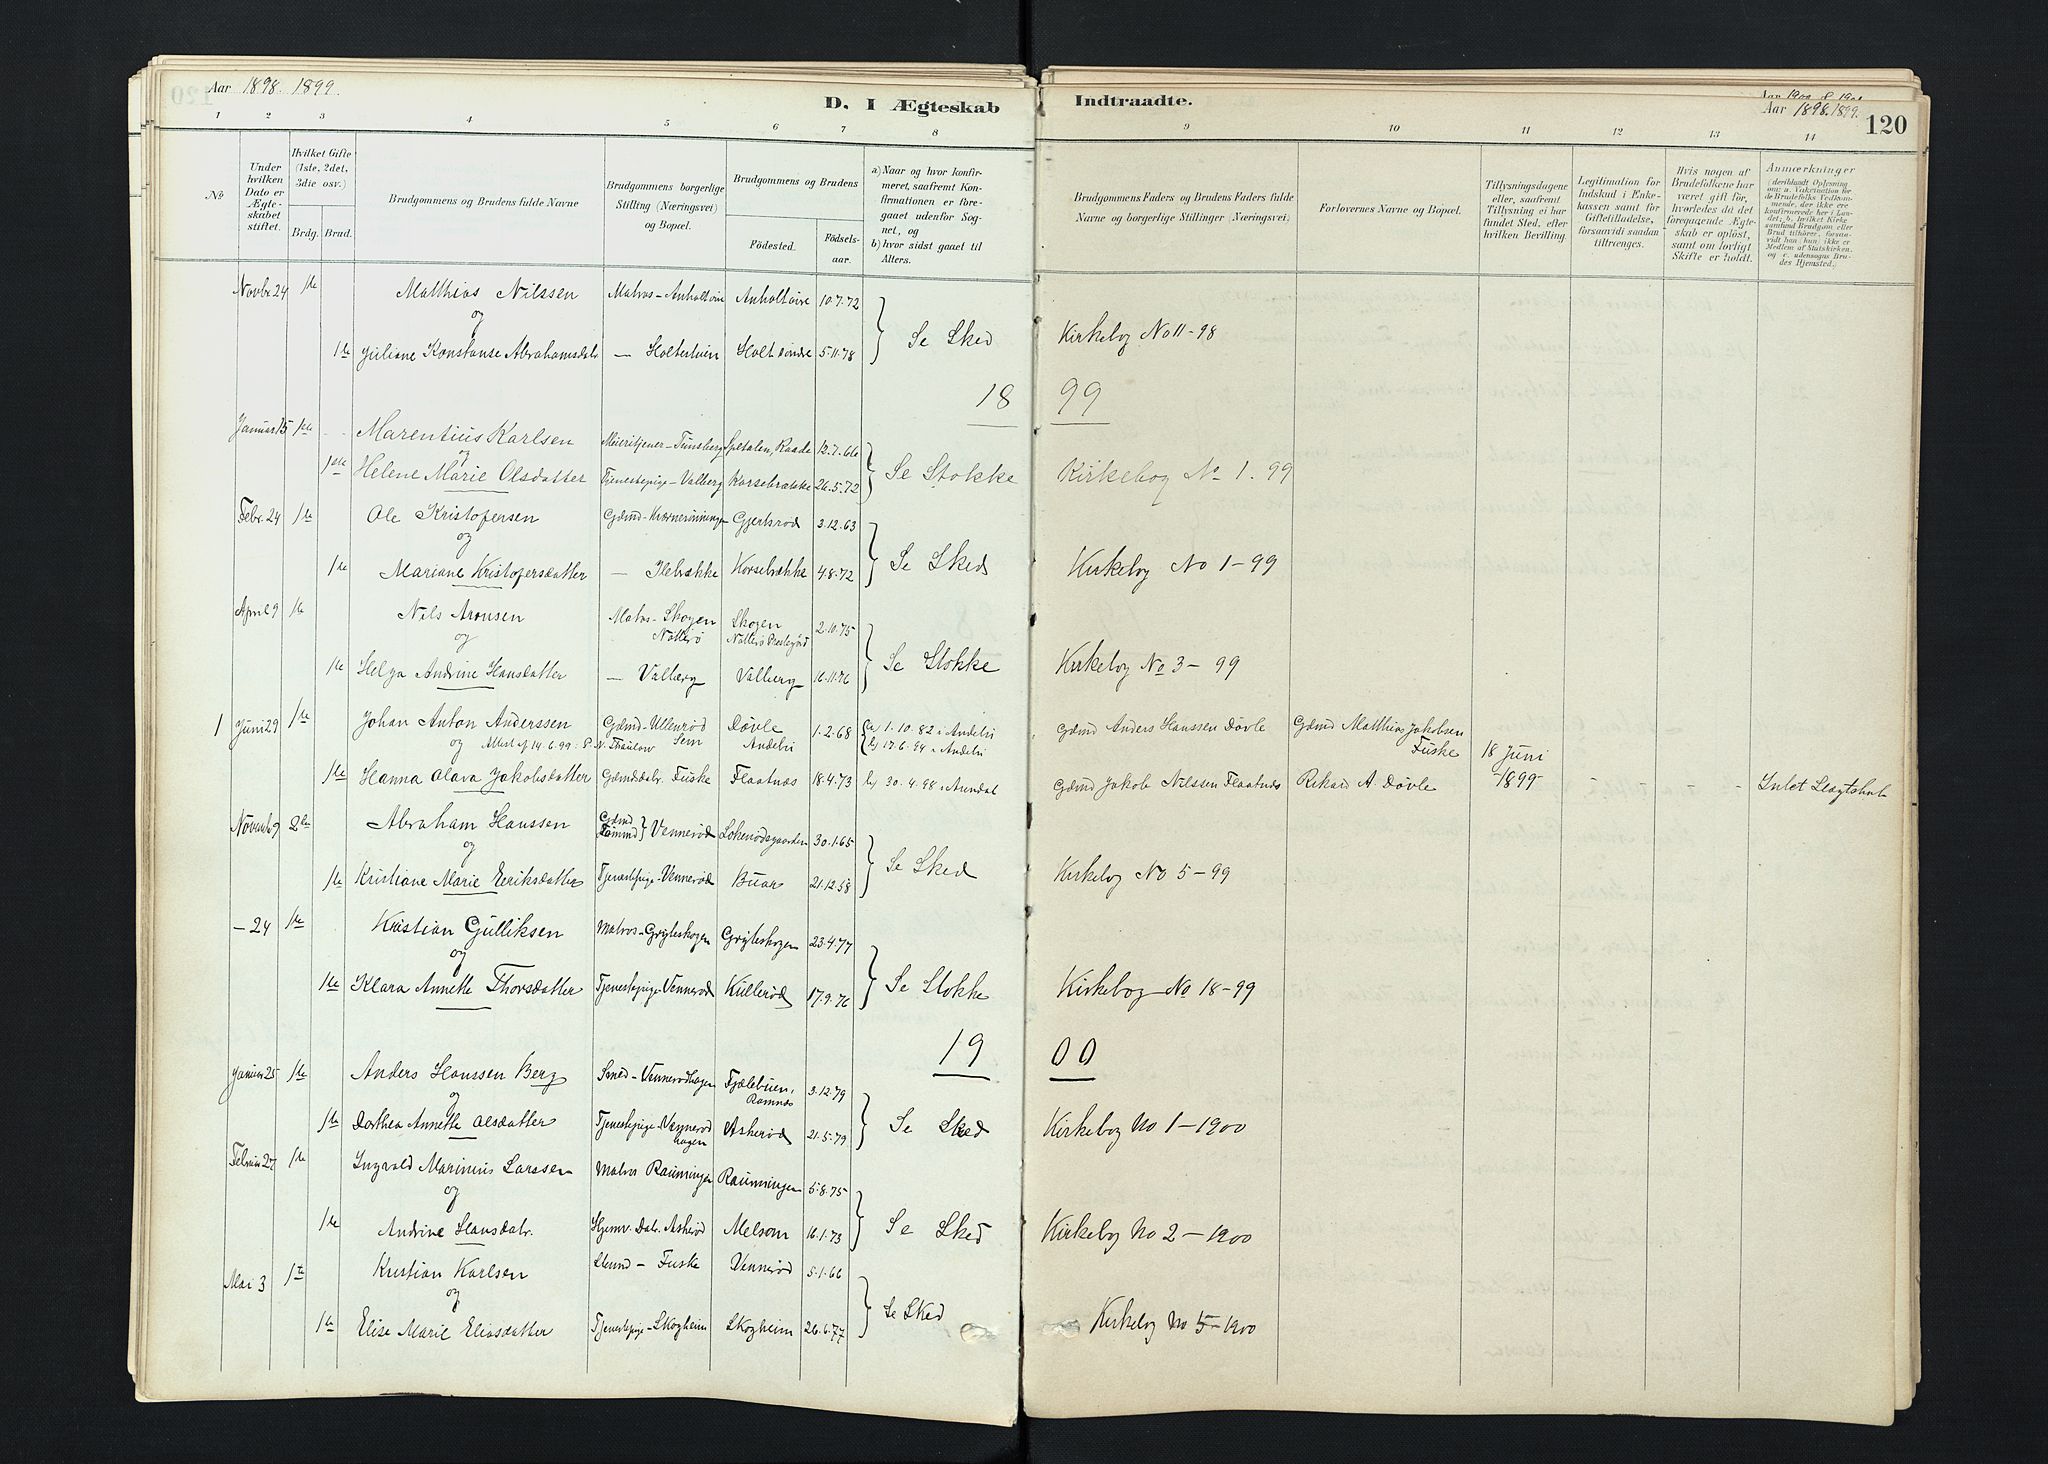 Aar 1898. 1899.
D. I Ægteskab Indtraadte.
Aar 1898. 1899.
120
1 2 3 4 5 6 7 8 9 10 11 12 13 14
No
Under hvilken Dato er Ægteskabet stiftet.
Hvilket Gifte (1ste, 2det, 3die osv.)
Brdg. Brud.
Brudgommens og Brudens fulde Navne
Brudgommens borgerlige Stilling (Næringsvei) og Bopæl.
Brudgommens og Brudens
Fødested. Fødselsaar.
a) Naar og hvor konfirmeret, saafremt Konfirmationen er foregaaet udenfor Sognet, og
b) hvor sidst gaaet til Alters.
Brudgommens Faders og Brudens Faders fulde Navne og borgerlige Stillinger (Næringsvei)
Forlovernes Navne og Bopæl.
Tillysningsdagene eller, saafremt Tillysning ei har fundet Sted, efter hvilken Bevilling.
Legitimation for Indskud i Enkekassen samt for Giftetilladelse, forsaavidt saadan tiltrænges.
Hvis nogen af Brudefolkene har været gift før, hvorledes da det foregaaende Ægteskab er opløst, samt om lovligt Skifte er holdt.
Anmærkninger
Novbr 24 1ste Matthias Nilssen Matros - Anholtøine Anholtøine 10.7.72
og
1ste Juliane Konstanse Abrahamsdatr — Holtestuen Holt søndre 5.11.78
Se Sked Kirkebog No 11-98
1899
Januar 15 1ste Marentius Karlsen Meieritjener - Tunsberg Spetalen, Raade 12.7.66
og
1ste Helene Marie Olsdatter Tjenestepige - Valberg Korsebrække 26.5.72
Se Stokke Kirkebog No 1. 99
Febr. 24 1ste Ole Kristofersen Gjertsrød 3.12.63
og
1ste Mariane Kristofersdatter — Ilebrække Korsebrække 4.8.72
Se Sked Kirkebog No 1-99
April 9 1ste Nils Aronsen Matros - Skogen Nøtterø Skogen Nøtterø Prestegjæld 2.10.75
og
1ste Helga Andrine Hansdatter — Valberg Valberg 16.11.76
Se Stokke Kirkebog No 3-99
1 Juni 29 1ste Johan Anton Anderssen Gdmd - Ullenrød Sem Døvle Andebu 1.2.68 a) 1.10.82 i Andebu b) 17.6.94 i Andebu Gdmd Anders Hanssen Døvle Gdmd Matthias Jakobsen Fuske
og Attest af 14.6.99: P. N. Thaulow
1ste Hanna Olava Jakobsdatter Gdmdsdatr. Fuske Flaatnæs 18.4.73 b) 30.4.98 i Arendal Gdmd Jakob Nilssen Flaatnæs Rikard A. Døvle 18 Juni 1899 - - - - Intet Slægtskab
Novemb 9 2den Abraham Hanssen Gdmd Tømmd } Vennerød Løkenødsgaarden 30.1.65
og
1ste Kristiane Marie Eeriksdatter Tjenestepige - Vennerød Buar 21.12.58
Se Sked Kirkebog No 5-99
— 24 1ste Kristian Gulliksen Matros - Gryteskogen Gryteskogen 23.4.77
og
1ste Klara Annette Thorsdatter Tjenestepige - Vennerød Kullerød 17.9.76
Se Stokke Kirkebog No 18-99
1900
Januar 25 1ste Anders Hanssen Berg Smed - Vennerødhagen Fjælebuen, Ramnæs 3.12.79
og
1ste Dorthea Annette Olsdatter Tjenestepige - Vennerødhagen Askerød 21.5.79
Se Sked Kirkebog No 1-1900
Februar 27 1ste Ingvald Marinius Larssen Matros Raumingen Raumingen 5.8.75
og
1ste Andrine Hansdatr. Hjemv. Datr. Askerød Melsom 16.1.73
Se Sked Kirkebog No 2-1900
Mai 3 1ste Kristian Karlsen Fuske Vennerød 5.1.66
og
1ste Elise Marie Eliasdatter Tjenestepige - Skogheim Skogheim 26.6.77
Se Sked Kirkebog No 5-1900